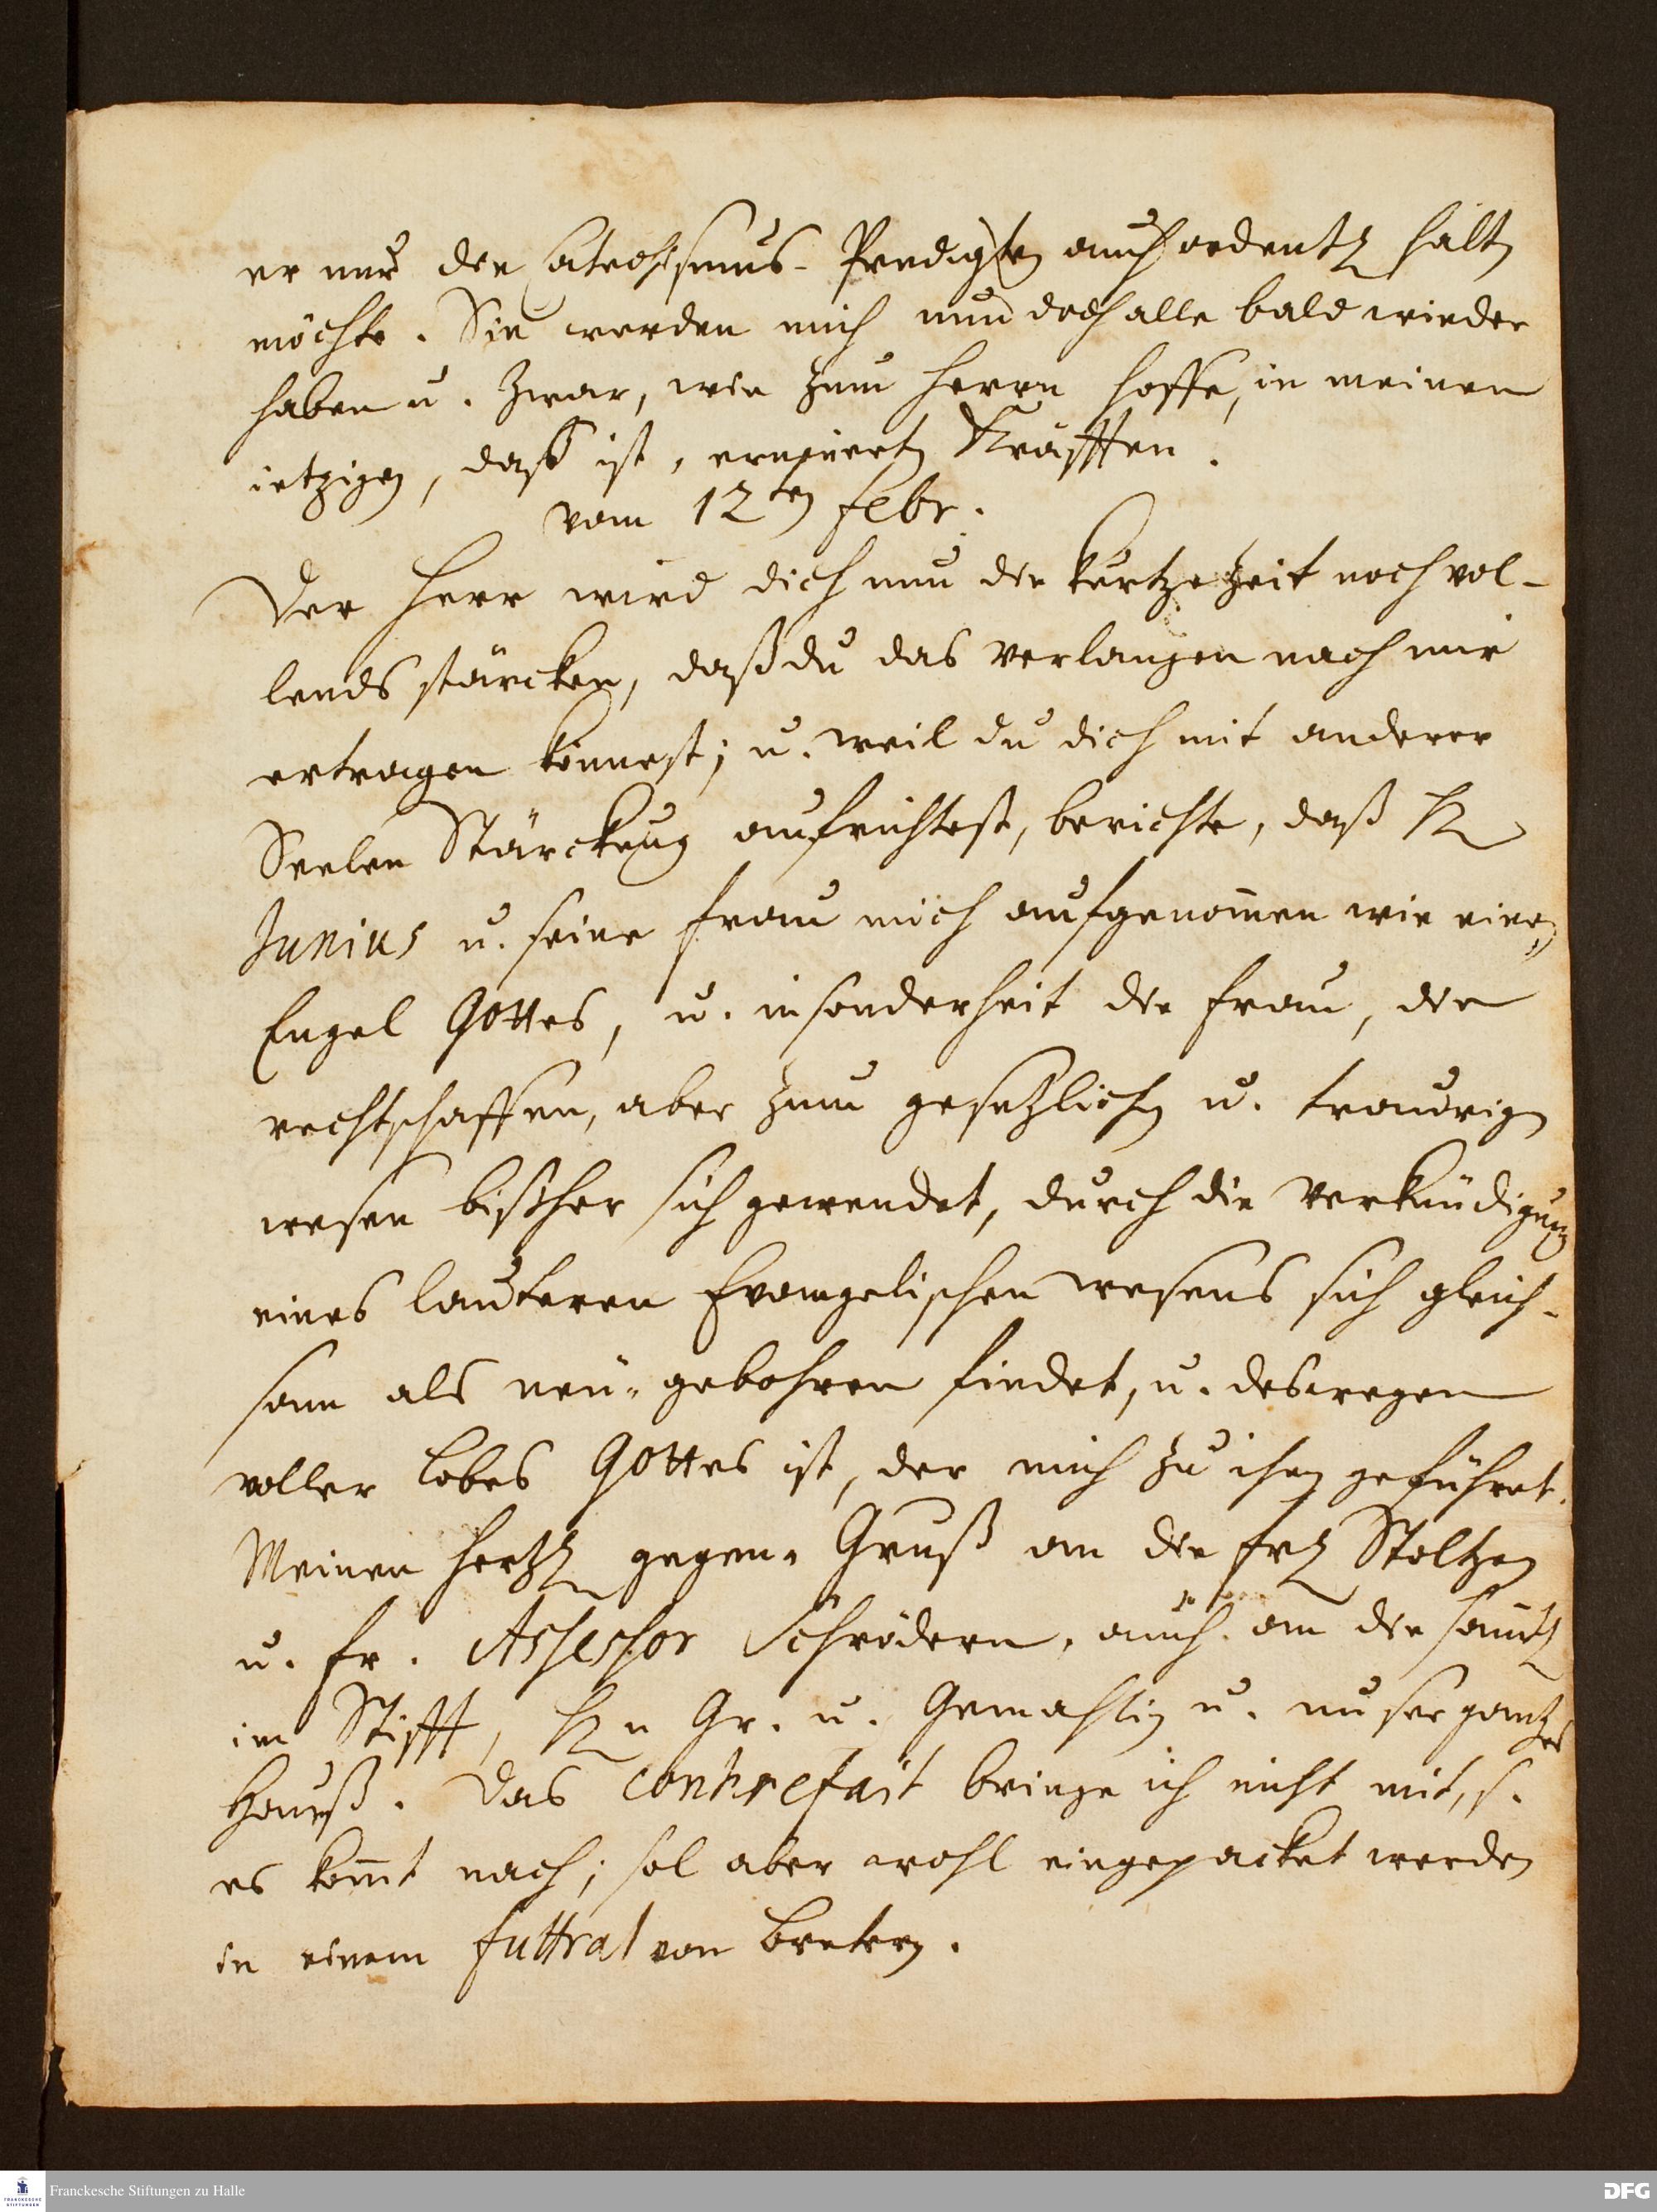 er nur die Catechismus-Predigten auch ordentl. halten
möchte. Sie werden mich nun doch alle bald wieder
haben u. zwar, wie zum Herrn hoffe, in meinen
ietzigen, daß ist, erneuerten Kräfften.
vom 12ten Febr.
Der Herr wird dich nun die kurtze Zeit noch vol-
lends stärcken, daß du das Verlangen nach mir
ertragen könnest; u. weil du dich mit anderer
Seelen Stärckung aufrichtest, berichte, daß H.
Junius u. seine Frau mich aufgenom̄en wie einen
Engel Gottes, u. insonderheit die Frau, die
rechtschaffen, aber zum gesetzlichen u. traurigen
wesen bißher sich gewendet, durch die Verkündigung
eines lauteren Evangelischen wesens sich gleich-
sam als neu-gebohren findet, u. deswegen
voller Lobes Gottes ist, der mich zu ihnen geführet.
Meinen hertzl. gegen-Gruß an die Frl. Stoltzen
u. Fr. Assessor Schrödern, auch an die
im Stifft, Hn Gr. u. Gemahlin u. unser gantzes
Hauß. Das Contrefait bringe ich nicht mit, s.
es kom̄t nach; sol aber wohl eingepacket werden
in einem Futtral von Bretern.
Franckesche Stiftungen zu Halle
FRANCKESCHE STIFTUNGEN
DFG